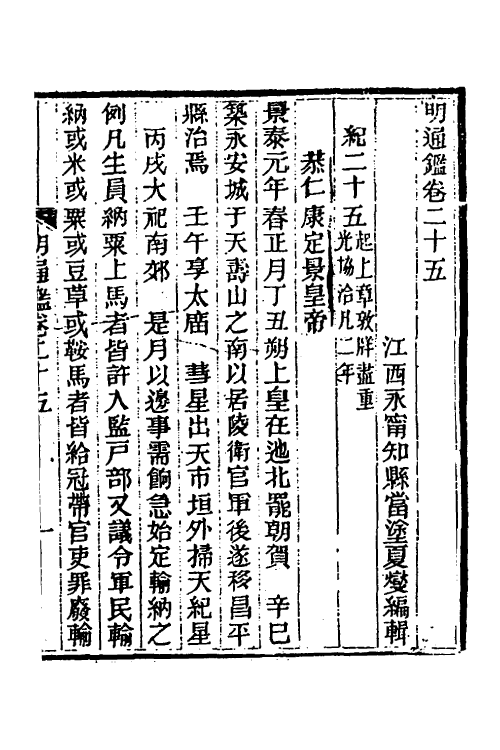 明通鑑卷二十五
江西永甯知縣當塗夏燮編輯
紀二十五起上章敦牂盡重
光協洽凡二年
恭仁康定景皇帝
景泰元年春正月丁丑朔上皇在迆北罷朝賀　辛巳
築永安城于天壽山之南以居陵衛官軍後遂移昌平
縣治焉　壬午享太廟　彗星出天市垣外掃天紀星
丙戌大祀南郊　是月以邊事需餉急始定輸納之
例凡生員納粟上馬者皆許入監戶部又議令軍民輸
納或米或粟或豆草或鞍馬者皆給冠帶官吏罪廢輸
明通鑑卷二十五　一